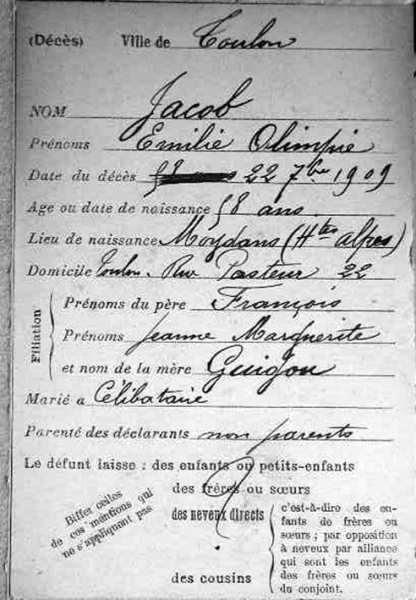 (Décès) Ville de Toulon
NOM Jacob
Prénoms Emilie Olimpie
Date du décès 58 ans 22 7bre 1909
Age ou date de naissance 58 ans
Lieu de naissance Moydans (Htes Alpes)
Domicile Toulon. Rue Pasteur 22
Filiation
Prénoms du père François
Prénoms Jeanne Marguerite
et nom de la mère Guigou
Marié a Célibataire
Parenté des déclarants non parents
Le défunt laisse : des enfants ou petits-enfants
des frères ou sœurs
Biffer celles
de ces mentions qui
ne s'appliquent pas
des neveux directs
c'est-à-dire des en-
fants de frères ou
sœurs ; par opposition
à neveux par alliance
qui sont les enfants
des frères ou sœurs
du conjoint.
des cousins